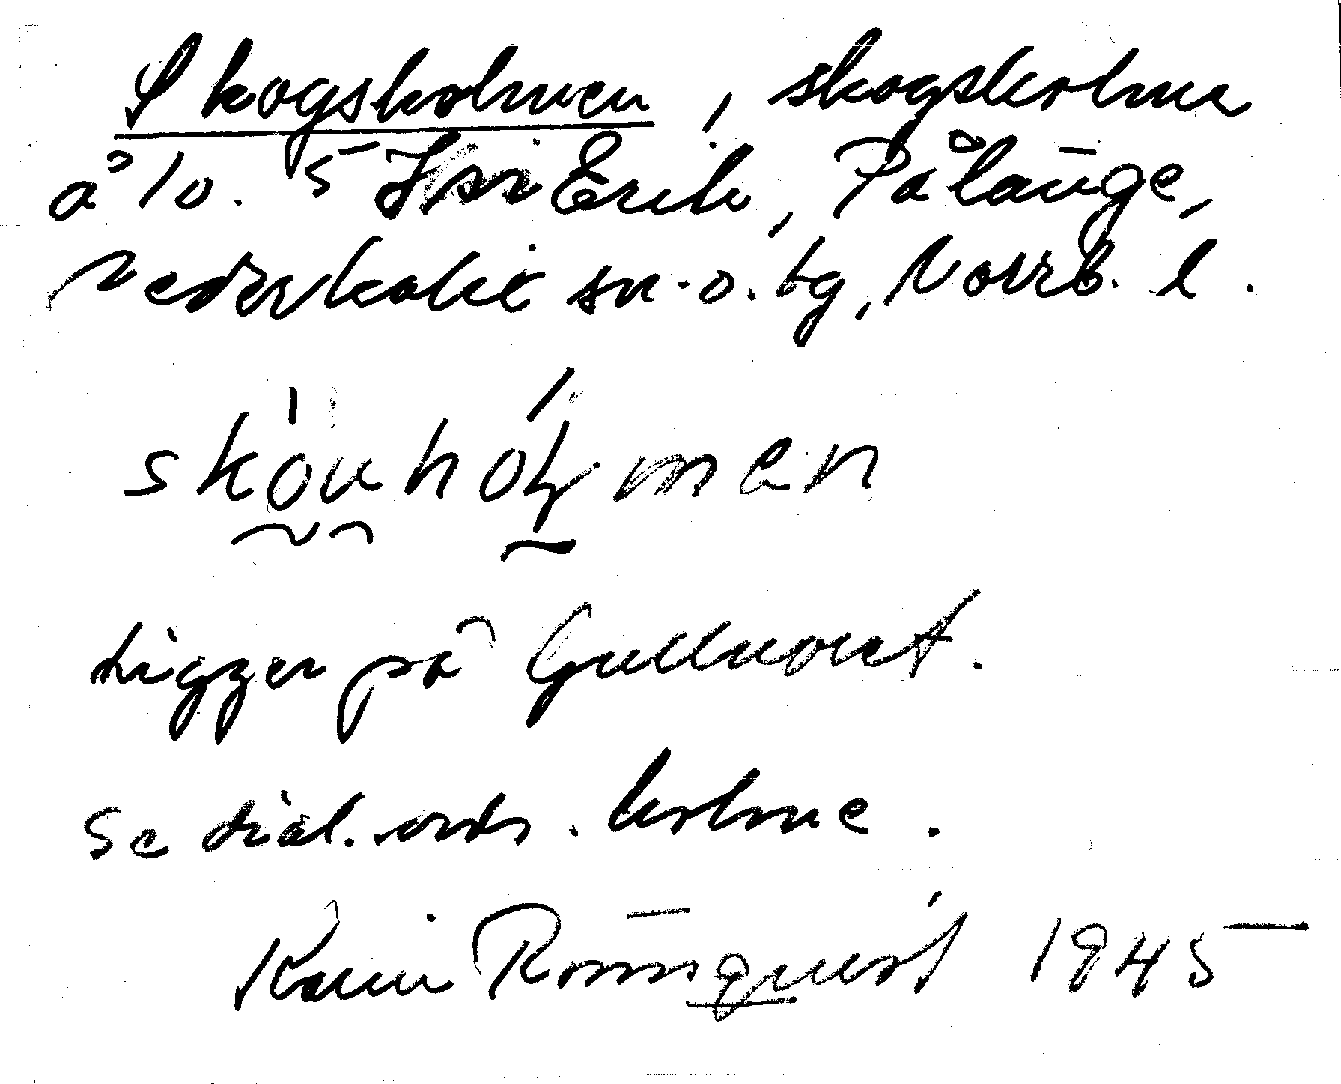 Skogsholmen, skogsholme
å lo. 5 Erik, Pålänge,
Nederkalix sn. o. tg, Norrb. l.
skóuhólmen
Ligger på
Se dial. ordr. holme.
Karin Rönnquist 1945